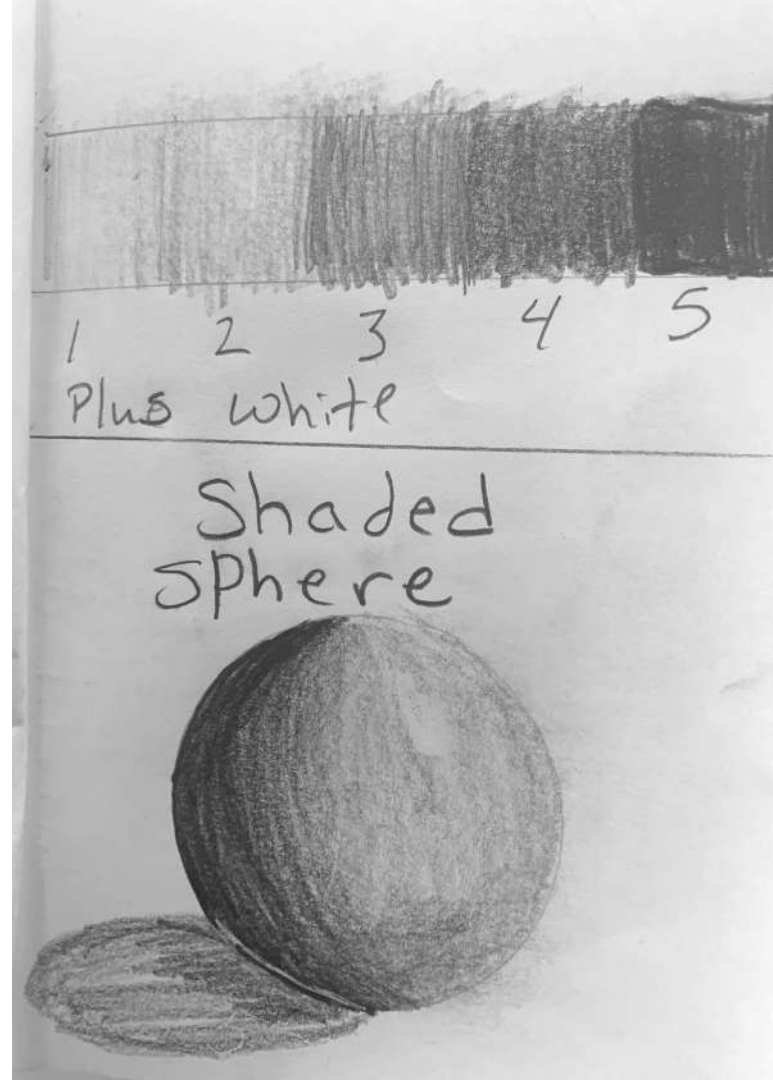 1 2 3 4 5
Plus white
Shaded
sphere